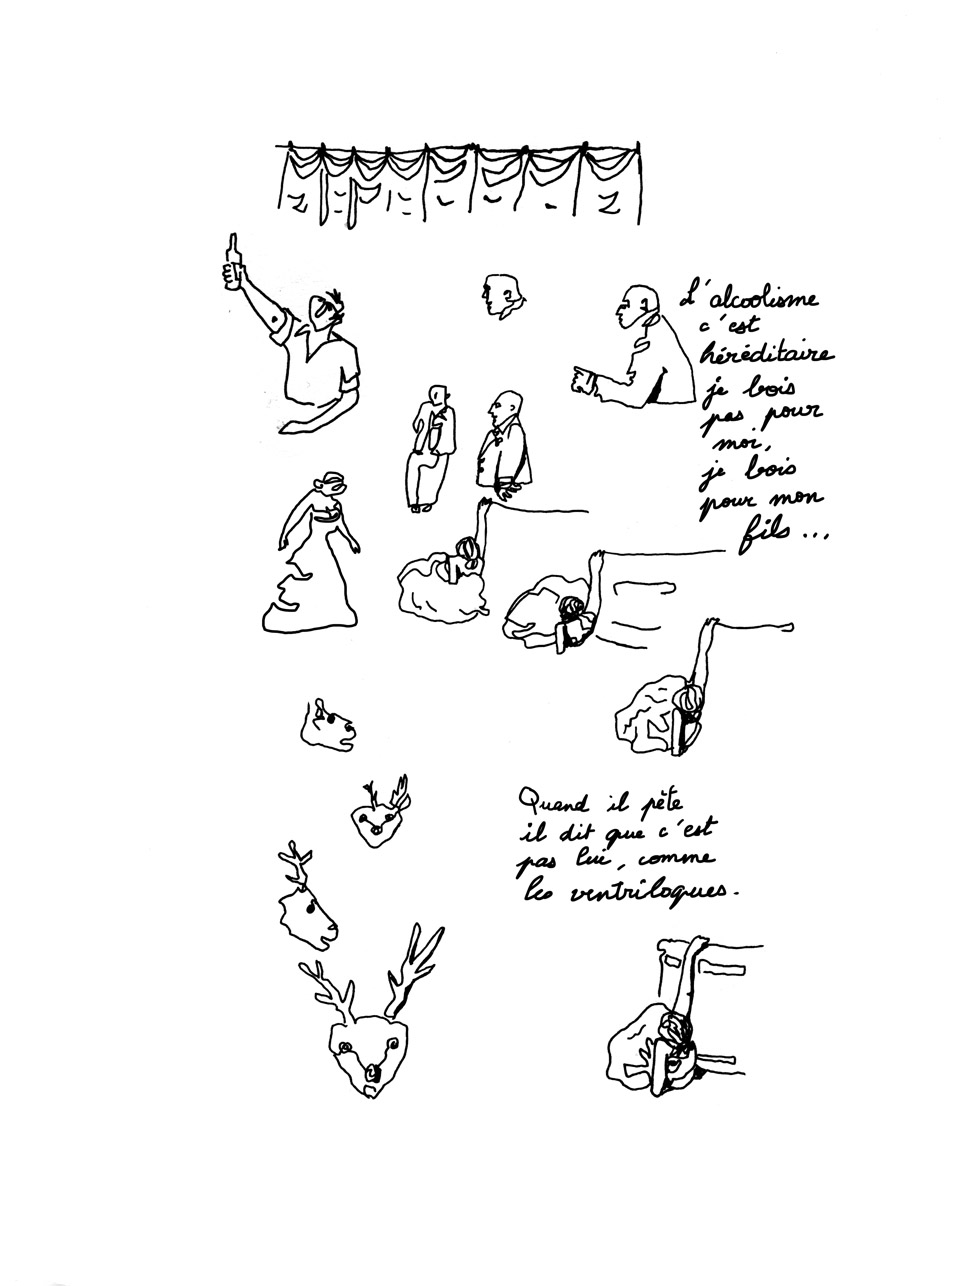 L'alcoolisme
c'est
héréditaire
je bois
pas pour
moi,
je bois
pour mon
fils ...
Quand il pète
il dit que c'est
pas lui, comme
les ventriloques.